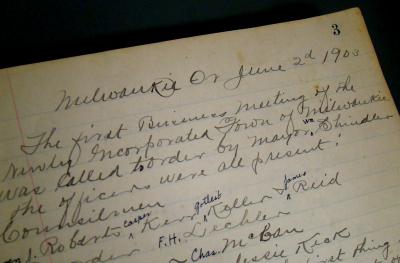 3
Milwaukie Or June 2d 1903
The first Business Meeting of the
Newly Incorporated Town of Milwaukie
was called to order by Mayor Wm Shindler
the officers were all present:
Counsilmen
Roberts casper Kerr gotleit Keller James Reid
F.H. Lechler
Chas. McCan
Leslie Keck
first thing